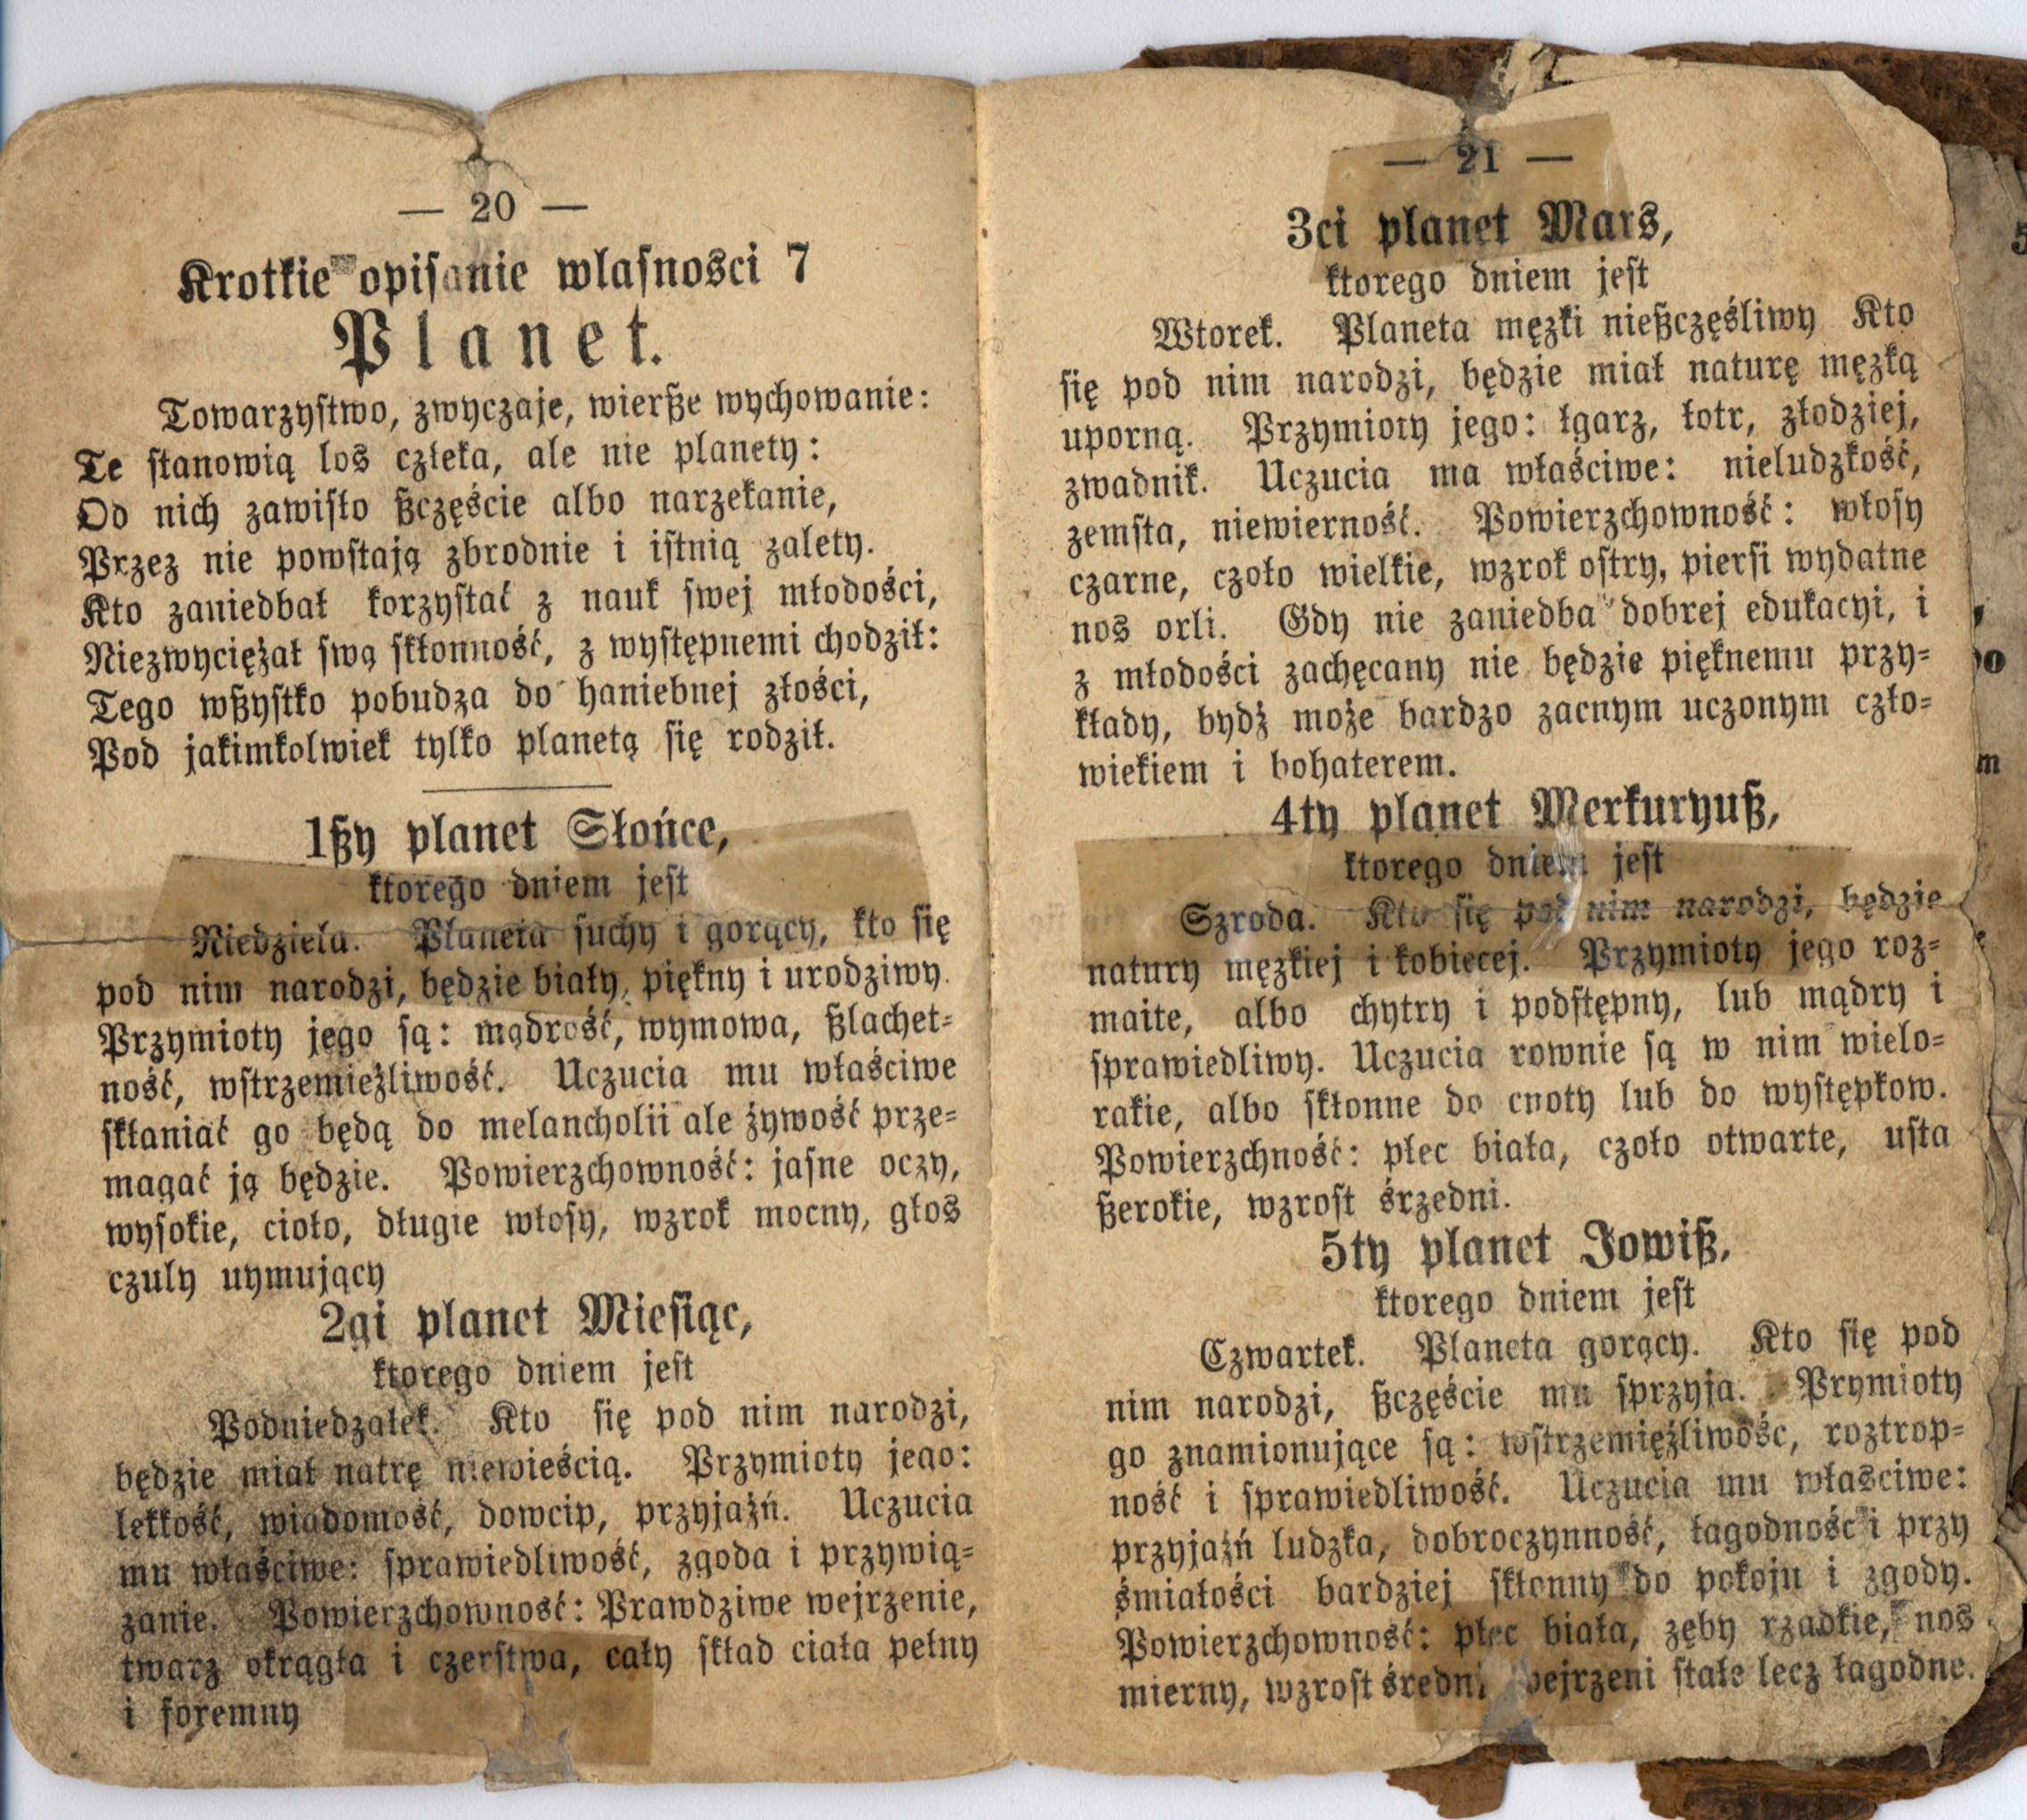 — 20 —
Krotkie opisanie wlasnosci 7
Planet.
Towarzystwo, zwyczaje, wierßze wychowanie:
Te stanowią los człeka, ale nie planety:
Od nich zawisło ßczęście albo narzekanie,
Przez nie powstają zbrodnie i istnią zalety.
Kto zaniedbał korzystać z nauk swej młodości,
Niezwyciężał swą skłonność, z występnemi chodził:
Tego wßystko pobudza do haniebnej złości,
Pod jakimkolwiek tylko planetą się rodził.
1ßy planet Słońce,
ktorego dniem jest
Niedziela. Planeta suchy i gorący, kto się
pod nim narodzi, będzie biały, piękny i urodziwy.
Przymioty jego są: mądrość, wymowa, ßlachet-
ność, wstrzemieźliwość. Uczucia mu właściwe
skłaniać go będą do melancholii ale żywość prze-
magać ją będzie. Powierzchowność: jasne oczy,
wysokie, cioło, długie włosy, wzrok mocny, głos
czuly uymujący
2gi planet Miesiąc,
ktorego dniem jest
Podniedzałek. Kto się pod nim narodzi,
będzie miał natrę niewieścią. Przymioty jego:
lekkość, wiadomość, dowcip, przyjaźń. Uczucia
mu właściwe: sprawiedliwość, zgoda i przywią-
zanie. Powierzchowność: Prawdziwe wejrzenie,
twarz okrągła i czerstwa, cały skład ciała pełny
i foremny
— 21 —
3ci planet Mars,
ktorego dniem jest
Wtorek. Planeta męzki nießczęśliwy Kto
się pod nim narodzi, będzie miał naturę męzką
uporną. Przymioty jego: łgarz, łotr, złodziej,
zwadnik. Uczucia ma właściwe: nieludzkość,
zemsta, niewierność. Powierzchowność: włosy
czarne, czoło wielkie, wzrok ostry, piersi wydatne
nos orli. Gdy nie zaniedba dobrej edukacyi, i
z młodości zachęcany nie będzie pięknemu przy-
kłady, bydź może bardzo zacnym uczonym czło-
wiekiem i bohaterem.
4ty planet Merkuryuß,
ktorego dniem jest
Szroda. Kto się pod nim narodzi, będzie
natury męzkiej i kobiecej. Przymioty jego roz-
maite, albo chytry i podstępny, lub mądry i
sprawiedliwy. Uczucia rownie są w nim wielo-
rakie, albo skłonne do cnoty lub do występkow.
Powierzchność: płec biała, czoło otwarte, usta
ßerokie, wzrost śrzedni.
5ty planet Jowiß,
ktorego dniem jest
Czwartek. Planeta gorący. Kto się pod
nim narodzi, ßczęście mu sprzyja. Prymioty
go znamionujące są: wstrzemięźliwośc, roztrop-
ność i sprawiedliwość. Uczucia mu własciwe:
przyjaźń ludzka, dobroczynność, łagodnośc i przy
śmiałości bardziej skłonny do pokoju i zgody.
Powierzchowność: płec biała, zęby rzadkie, nos
mierny, wzrost średni wejrzeni stałe lecz łagodne.